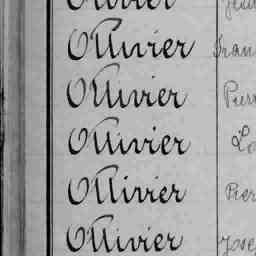 Ollivier
Ollivier Fran
Ollivier Pierr
Ollivier Lo
Ollivier Pier
Ollivier Jose